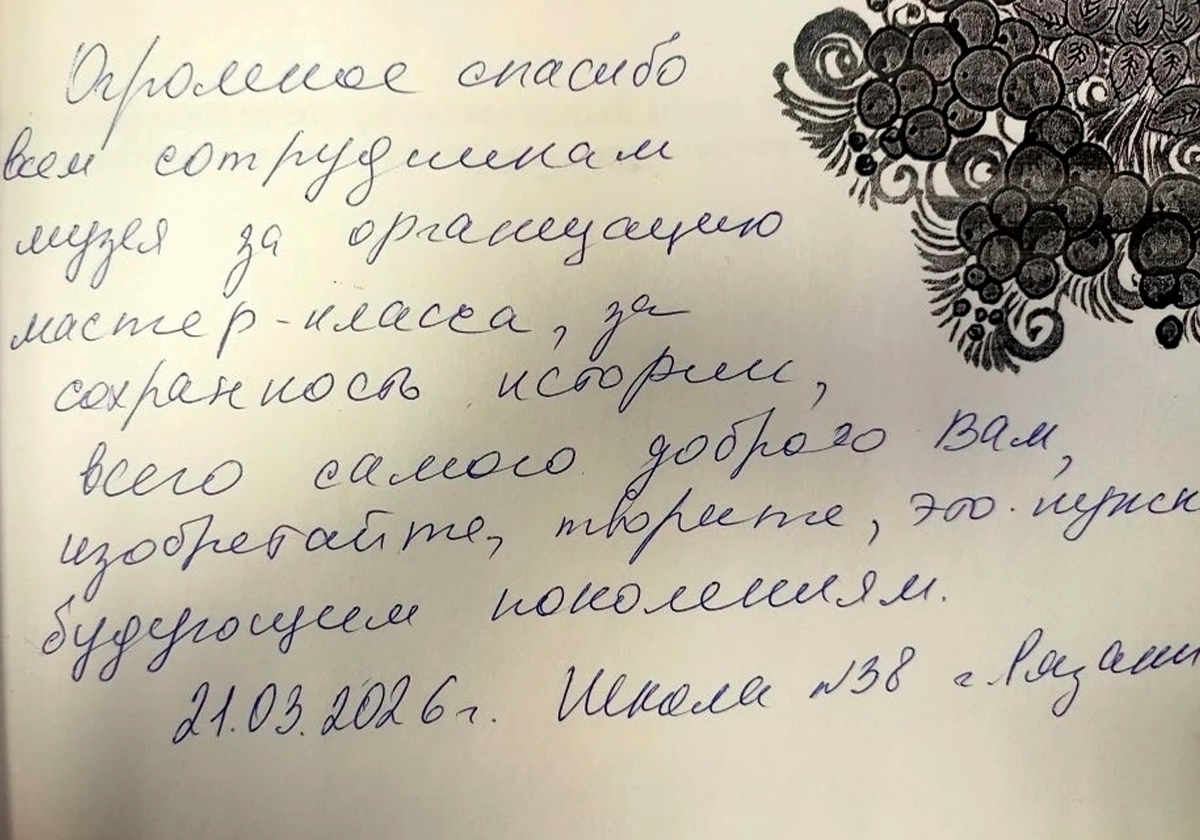 Огромное спасибо
всем сотрудникам
музея за организацию
мастер-класса, за
сохранность истории,
всего самого доброго Вам,
изобретайте, творите, это нужн
будующим поколениям.
21.03.2026г. Школа №38 г. Рязани